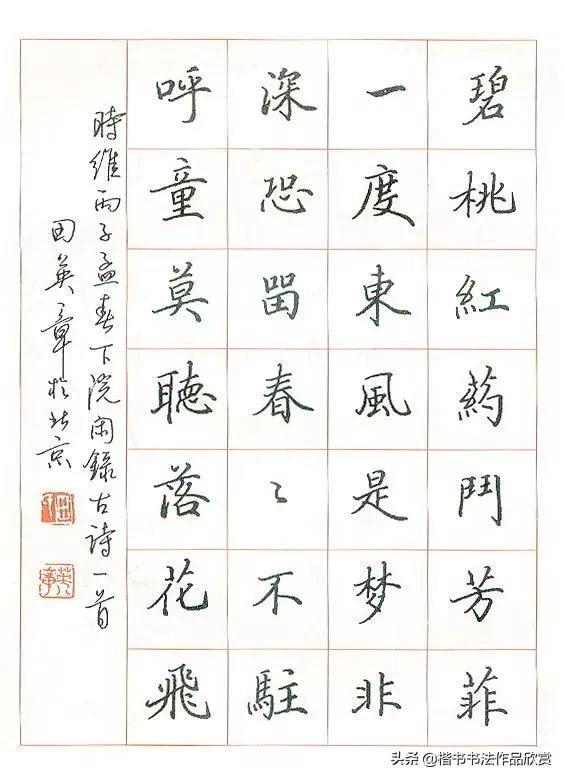 碧桃紅葯鬥芳菲
一度東風是梦非
深恐留春〻不駐
呼童莫聽落花飛
時維丙子孟春下院閑錄古詩一首
田英章於北京
头条 @楷书书法作品欣赏